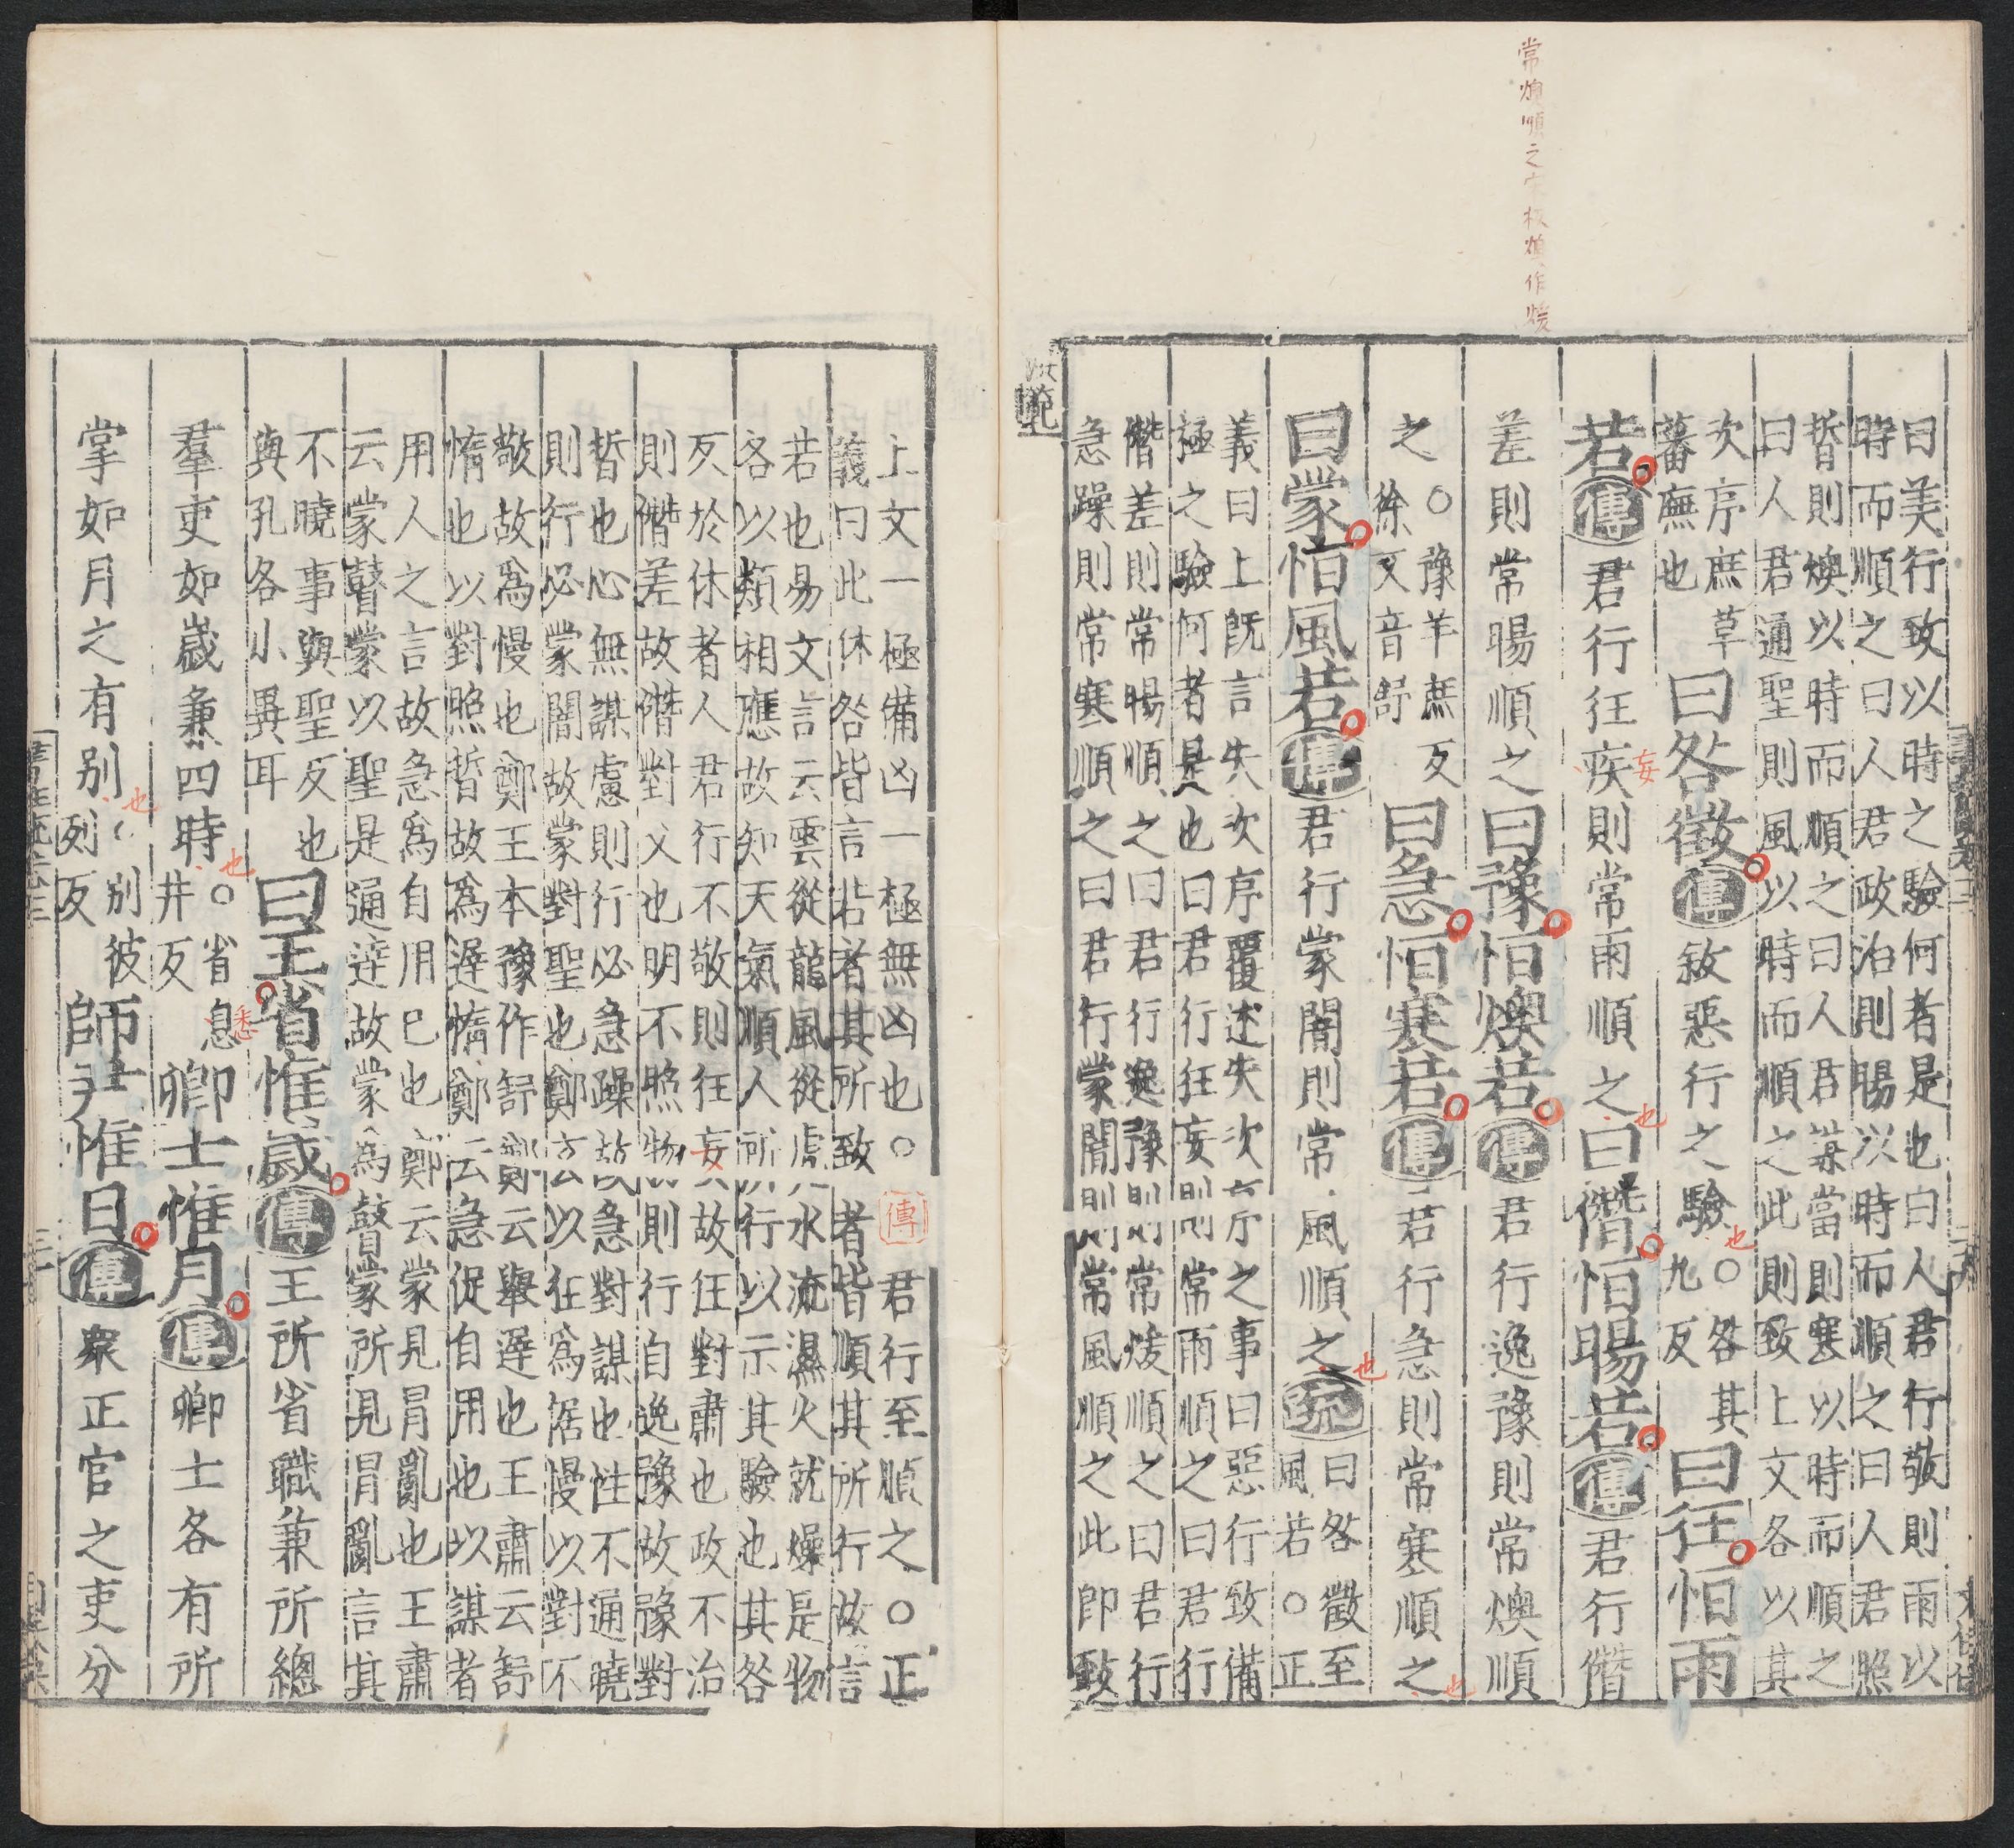 常燠順之宋板燠作煖
曰美行致以時之驗何者是也曰人君行敬則雨以
時而順之曰人君政治則暘以時而順之曰人君照
晢則燠以時而順之曰人君謀當則寒以時而順之
曰人君通聖則風以時而順之此則致上文各以其
次序庶草
蕃廡也
曰咎徵傳敘惡行之驗也○咎其
九反
曰狂恒雨
若傳君行狂疾妄則常雨順之也曰僭恒暘若傳君行僭
差則常暘順之曰豫恒燠若傳君行逸豫則常燠順
之○豫羊庶反
徐又音舒
曰急恒寒若傳君行急則常寒順之也
曰蒙恒風若傳君行蒙闇則常風順之也疏曰咎徵至
風若○正
義曰上既言失次序覆述失次序之事曰惡行致備
極之驗何者是也曰君行狂妄則常雨順之曰君行
僭差則常暘順之曰君行逸豫則常煖順之曰君行
急躁則常寒順之曰君行蒙闇則常風順之此即致
洪範
上文一極備凶一極無凶也○傳君行至順之○正
義曰此休咎皆言若者其所致者皆順其所行故言
若也易文言云雲從龍風從虎水流濕火就燥是物
各以類相應故知天氣順人所行以示其驗也其咎
反於休者人君行不敬則狂妄故狂對肅也政不治
則僭差故僭對乂也明不照物則行自逸豫故豫對
晢也心無謀慮則行必急躁故急對謀也性不通曉
則行必蒙闇故蒙對聖也鄭玄以狂爲倨慢以對不
敬故爲慢也鄭王本豫作舒鄭云舉遲也王肅云舒
惰也以對照晢故爲遲惰鄭云急促自用也以謀者
用人之言故急爲自用己也鄭云蒙見冒亂也王肅
云蒙瞽蒙以聖是通達故蒙爲瞽蒙所見冒亂言其
不曉事與聖反也
與孔各小異耳
曰王省惟歲傳王所省職兼所總
羣吏如歲兼四時也○省息悉
井反
卿士惟月傳卿士各有所
掌如月之有別也別彼
列反
師尹惟日傳衆正官之吏分